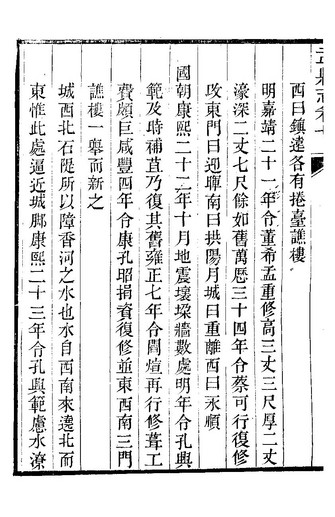 西曰鎮遠各有捲臺譙樓
明嘉靖二十一年令董希孟重修高三丈三尺厚二丈
濠深二丈七尺餘如舊萬歷三十四年令蔡可行復修
改東門曰迎暉南曰拱陽月城曰重離西曰永順
國朝康熙二十二年十月地震壞垛牆數處明年令孔興
範及時補葺乃復其舊雍正七年令閻煊再行修葺工
費頗巨咸豐四年令康孔昭捐資復修並東西南三門
譙樓一舉而新之
城西北石隄所以障香河之水也水自西南來遶北而
東惟此處逼近城腳康熙二十三年令孔興範慮水潦